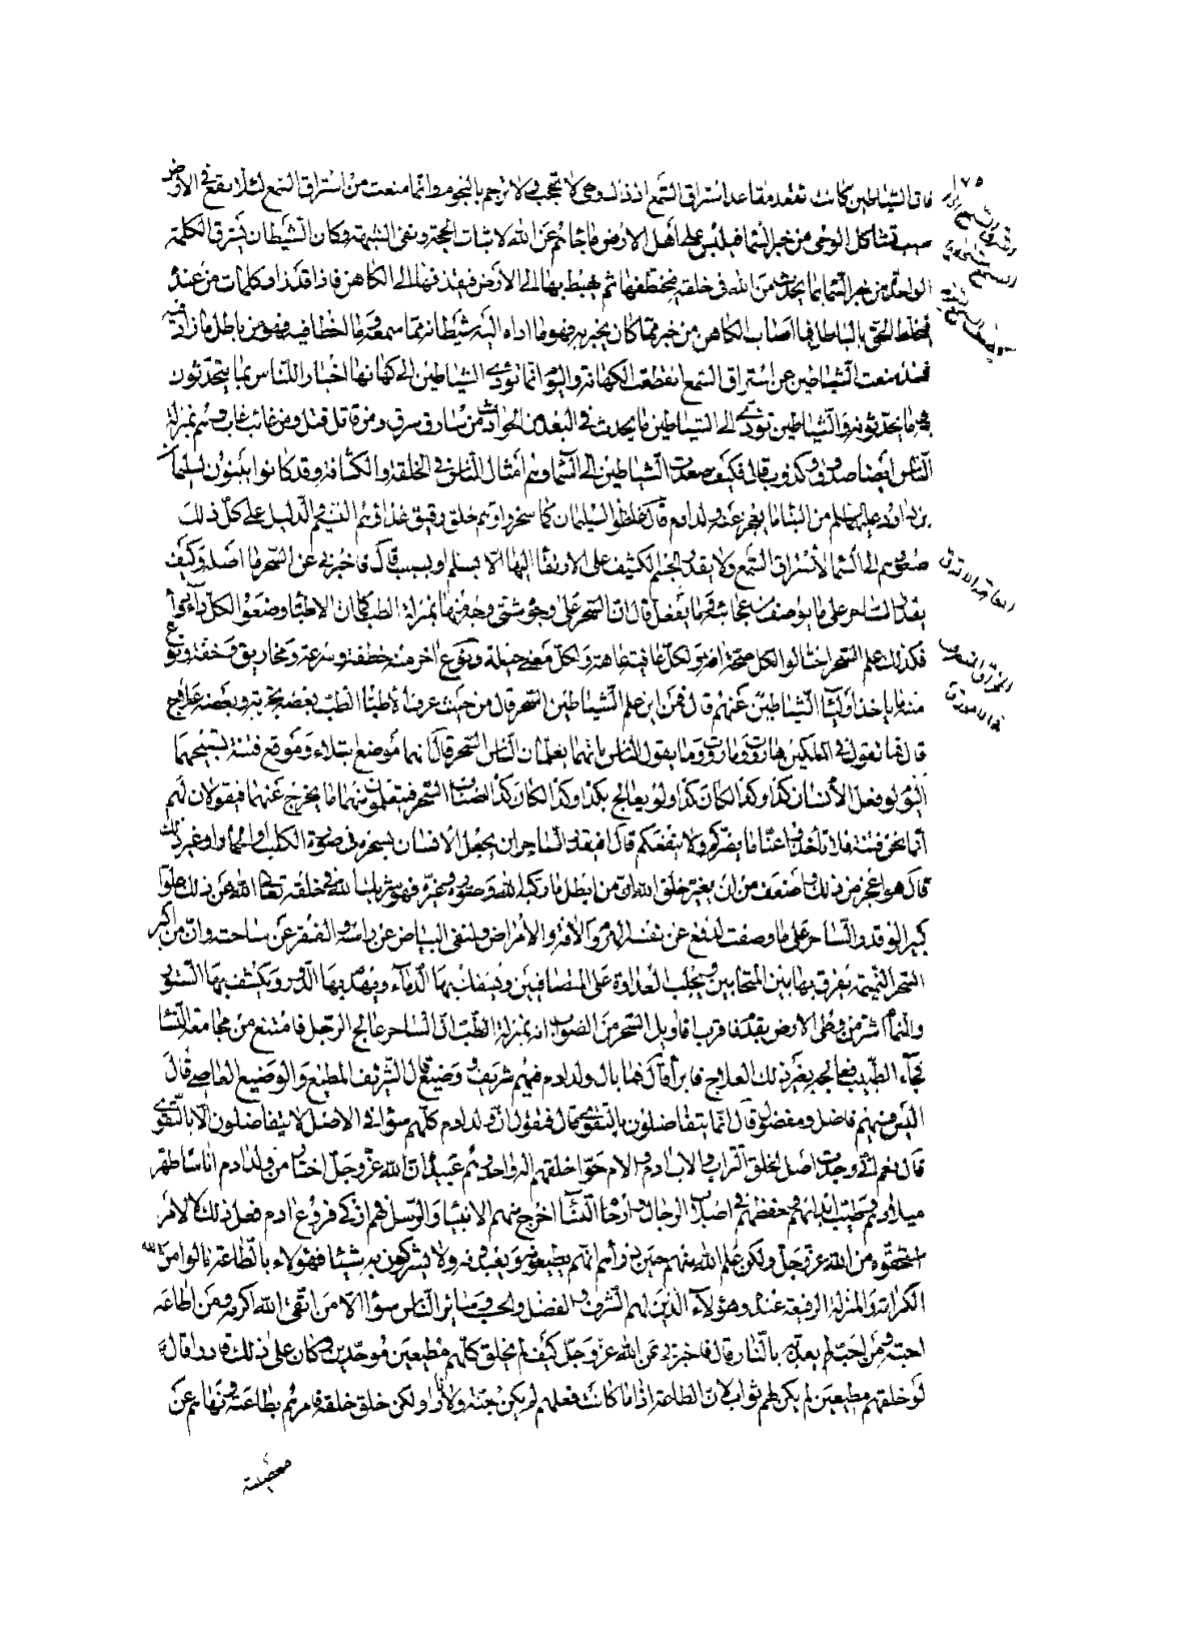 فان الشياطين كانت تقعد مقاعد استراق السمع اذ ذاك وهى لا تحجب ولا ترجم بالنجوم وانما منعت من استراق السمع لئلا يقع فى الارض
سبب تشاكل الوحى من خبر السماء فيلبس على اهل الارض ما جائهم عن الله لاثبات الحجة ونفى الشبهة وكان الشيطان يسترق الكلمة
الواحدة من خبر السماء بما يحدث من الله فى خلقه فيختطفها ثم يهبط بها الى الارض فيقذفها الى الكاهن فاذا قد زاد كلمات من عنده
فيخلط الحق بالباطل فما اصاب الكاهن من خبر مما كان يخبر به فهو ما اداه اليه شيطانه مما سمعه وما اخطا فيه فهو من باطل ما زاد فيه
فمنذ منعت الشياطين عن استراق السمع انقطعت الكهانة واليوم انما تؤدى الشياطين الى كهانها اخبارا للناس بما يتحدثون
به وما يحدثونه والشياطين تؤدى الى الشياطين ما يحدث فى البعد من الحوادث من سارق سرق ومن قاتل قتل ومن غائب غاب وهم بمنزلة
الناس ايضا صدوق وكذوب قال فكيف صعدت الشياطين الى السماء وهم امثال الناس فى الخلقة والكثافة وقد كانوا يبنون لسليمان
بن داود عليهما السلم من البناء ما يعجز عنه ولد ادم قال غلظوا لسليمان كما سخروا وهم خلق رقيق غذاؤهم التنسم والدليل على كل ذلك
صعودهم الى السماء لاستراق السمع ولا يقدر الجسم الكثيف على الارتقاء اليها الا بسلم او بسبب قال فاخبرنى عن السحر ما اصله وكيف
يقدر الساحر على ما يوصف من عجائبه وما يفعل قال ان السحر على وجوه شتى وجه منها بمنزلة الطب كما ان الاطباء وضعوا لكل داء دواء
فكذلك علم السحر احتالوا لكل صحة افة ولكل عافية عاهة ولكل معنى حيلة ونوع اخر منه خطفة وسرعة ومخاريق وخفة ونوع
منه ما ياخذ اولياء الشياطين عنهم قال فمن اين علم الشياطين السحر قال من حيث عرف الاطباء الطب بعضه تجربة وبعضه علاج
قال فما تقول فى الملكين هاروت وماروت وما يقول الناس بانهما يعلمان الناس السحر قال انهما موضع ابتلاء وموقع فتنة تسبيحهما
اليوم لو فعل الانسان كذا وكذا لكان كذا ولو يعالج بكذا وكذا لكان كذا اصناف السحر فيتعلمون منهما ما يخرج عنهما فيقولان لهم
انما نحن فتنة فلا تأخذوا عنا ما يضركم ولا ينفعكم قال افيقدر الساحر ان يجعل الانسان بسحره فى صورة الكلب او الحمار او غير ذلك
قال هو اعجز من ذلك واضعف من ان يغير خلق الله ان من ابطل ما ركبه الله وصوره وغيره فهو شريك لله فى خلقه تعالى الله عن ذلك علوا
كبيرا لو قدر الساحر على ما وصفت لدفع عن نفسه الهرم والافة والامراض ولنفى البياض عن راسه والفقر عن ساحته وان من اكبر
السحر النميمة يفرق بها بين المتحابين ويجلب العداوة على المتصافيين ويسفك بها الدماء ويهدم بها الدور ويكشف بها الستور
والنمام اشر من وطى الارض بقدم فاقرب اقاويل السحر من الصواب انه بمنزلة الطب ان الساحر عالج الرجل فامتنع من مجامعة النساء
فجاء الطبيب فعالجه بغير ذلك العلاج فابرأ قال فما بال ولد ادم فيهم شريف ووضيع قال الشريف المطيع والوضيع العاصى قال
اليس فيهم فاضل ومفضول قال انما يتفاضلون بالتقوى قال فتقول ان ولد ادم كلهم سواء فى الاصل لا يتفاضلون الا بالتقوى
قال نعم انى وجدت اصل الخلق التراب والاب ادم والام حوا خلقهم اله واحد وهم عبيده ان الله عز وجل اختار من ولد ادم اناسا طهر
ميلادهم وطيب ابدانهم وحفظهم فى اصلاب الرجال وارحام النساء اخرج منهم الانبياء والرسل فهم ازكى فروع ادم فعل ذلك لا لامر
استحقوه من الله عز وجل ولكن علم الله منهم حين ذرأهم انهم يطيعونه ويعبدونه ولا يشركون به شيئا فهؤلاء بالطاعة نالوا من الله
الكرامة والمنزلة الرفيعة عنده وهؤلاء الذين لهم الشرف والفضل والحسب وسائر الناس سواء الا من اتقى الله اكرمه ومن اطاعه
احبه ومن احبه لم يعذبه بالنار قال فاخبرنى عن الله عز وجل كيف لم يخلق كلهم مطيعين موحدين وكان على ذلك قادرا قال
لو خلقهم مطيعين لم يكن لهم ثواب لان الطاعة اذا ما كانت فعلهم لم يكن جنة ولا نار ولكن خلق خلقه فامرهم بطاعته ونهاهم عن
معصيته